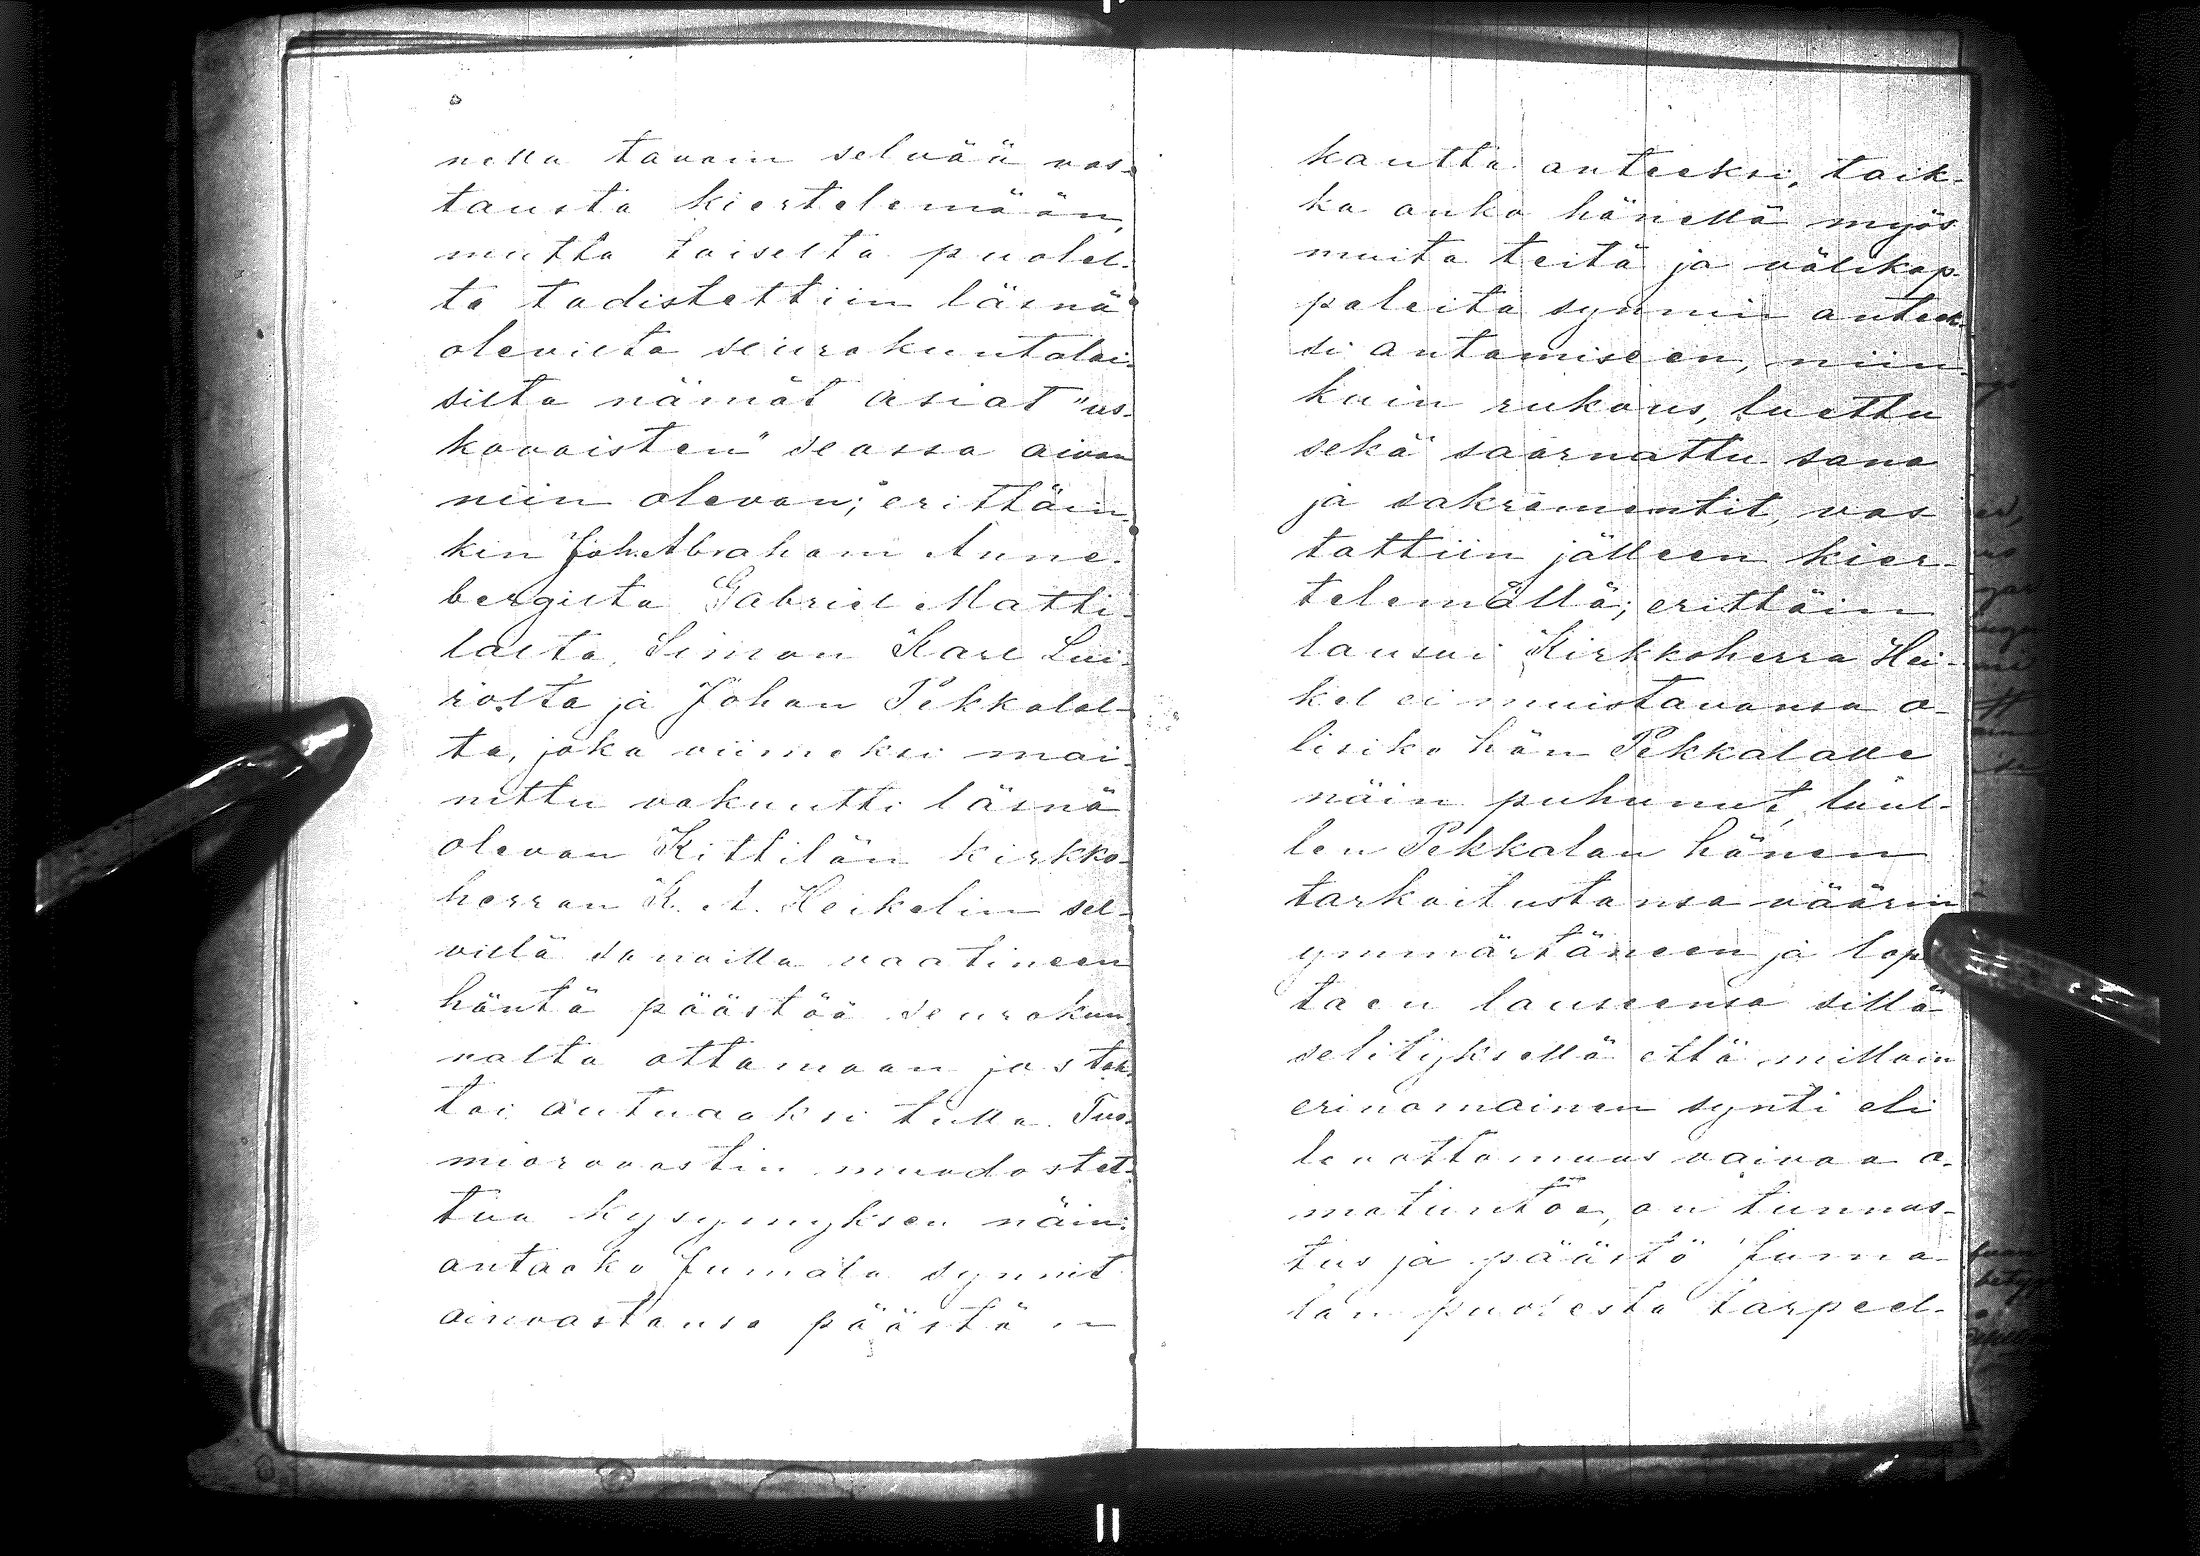 nella tavoin selvää vas-
tausta kiertelemään,
mutta toiselta puolel-
ta todistettiin läsnä
olevilta seurakuntalai-
silta nämät asiat "us-
kovaisten" seassa aivan
niin olevan; erittäin-
kin Joh. Abraham Anne-
bergilta Gabriel Matti-
lalta, Simon Karl Lui-
rolta ja Johan Pekkalal-
ta, joka viimeksi mai-
nittu vakuutti läsnä
olevan Kittilän kirkko-
herran K. A. Heikelin sel-
villä sanoilla vaatineen
häntä päästöä seurakun-
nalta ottamaan jos tah-
toi autuaaksi tulla. Tuo-
miorovastin muodostet-
tua kysymyksen näin:
antaako Jumala synnit
ainoastansa päästön
kautta anteeksi, taik-
ka onko hänellä myös
muita teitä ja välikap-
paleita synnin anteek-
si antamiseen, niin-
kuin rukous, luettu
sekä saarnattu sana
ja sakramentit, vas
tattiin jälleen kier-
telemällä; erittäin
lausui Kirkkoherra Hei-
kel ei muistavansa o-
lisiko hän Pekkalalle
näin puhunut, luul-
len Pekkalan hänen
tarkoitustansa väärin
ymmärtäneen ja lop
taen lauseensa sillä
selityksellä että milloin
erinomainen synti eli
levottomuus vaivaa o-
matuntoa, on tunnus-
tus ja päästö Juma-
lan puolesta tarpeel-
11